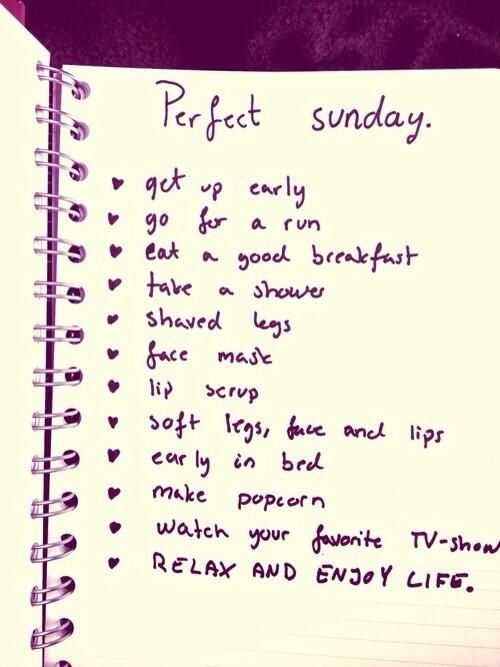 Perfect sunday.
♥ get up early
♥ go for a run
♥ eat a good breakfast
♥ take a shower
♥ shaved legs
♥ face mask
♥ lip scrup
♥ soft legs, face and lips
♥ early in bed
♥ make popcorn
♥ watch your favorite TV-show
♥ RELAX AND ENJOY LIFE.